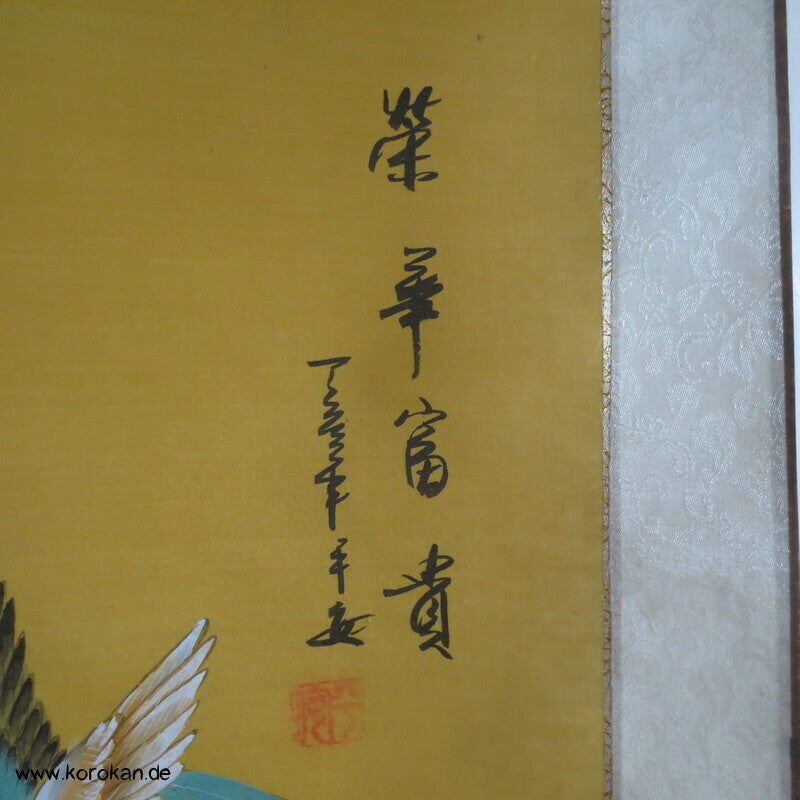 榮華富貴
年平安
www.korokan.de